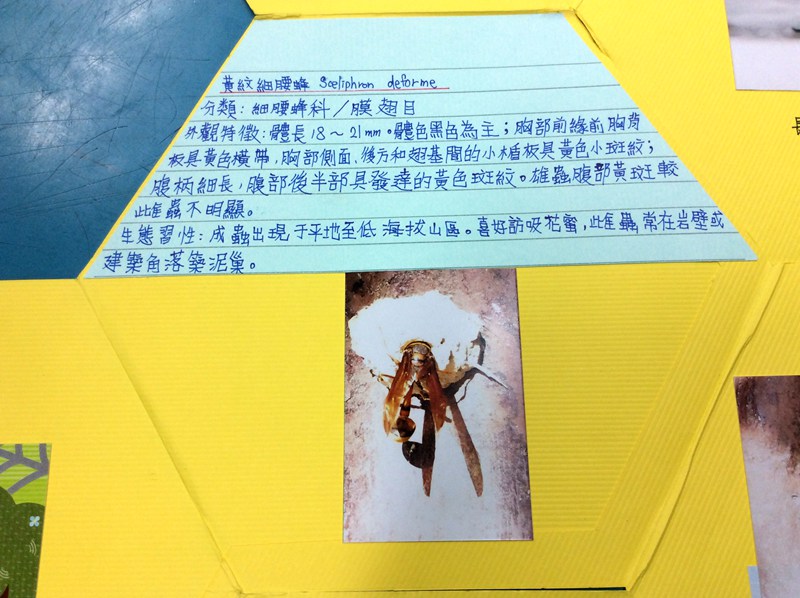 黃紋細腰蜂 Sceliphron deforme
分類：細腰蜂科／膜翅目
外觀特徵：體長18～21mm。體色黑色為主；胸部前緣前胸背
板具黃色橫帶，胸部側面、後方和翅基間的小楯板具黃色小斑紋；
腹柄細長，腹部後半部具發達的黃色斑紋。雄蟲腹部黃斑較
雌蟲不明顯。
生態習性：成蟲出現于平地至低海拔山區。喜好訪吸花蜜，雌蟲常在岩壁或
建築角落築泥巢。